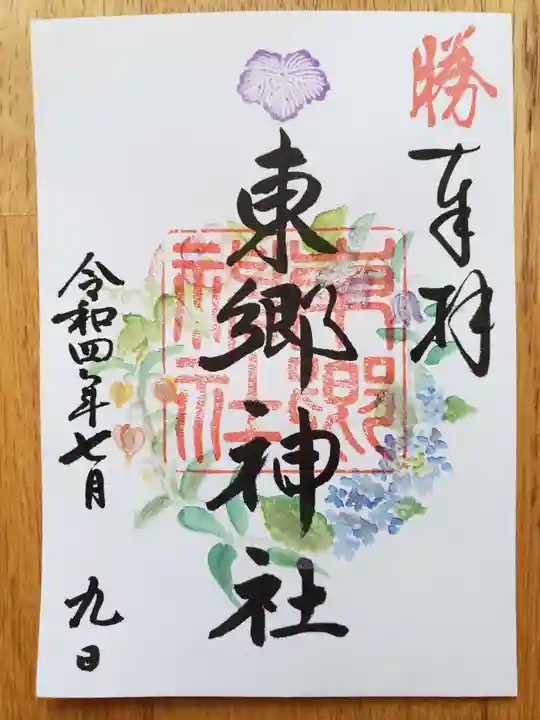 勝
奉拝
東郷神社
東郷神社
令和四年七月
九日